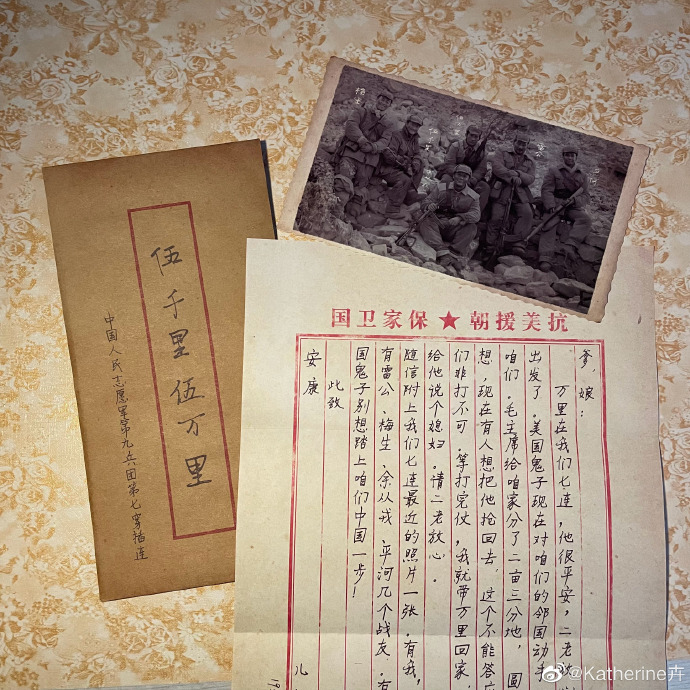 伍千里 伍万里
中国人民志愿军第九兵团第七穿插连
梅生
雷公
平河
抗美援朝★保家卫国
爹、娘：
万里在我们七连，他很平安，二老
出发了。美国鬼子现在对咱们的邻国动手
咱们。毛主席给咱家分了二亩三分地，圆
想，现在有人想把他抢回去，这个不能答应
们非打不可。等打完仗，我就带万里回家，
给他说个媳妇。请二老放心。
随信附上我们七连最近的照片一张，有我，
有雷公、梅生、余从戎、平河几个战友。有
国鬼子别想踏上咱们中国一步！
此致
安康
儿
19
@Katherine卉